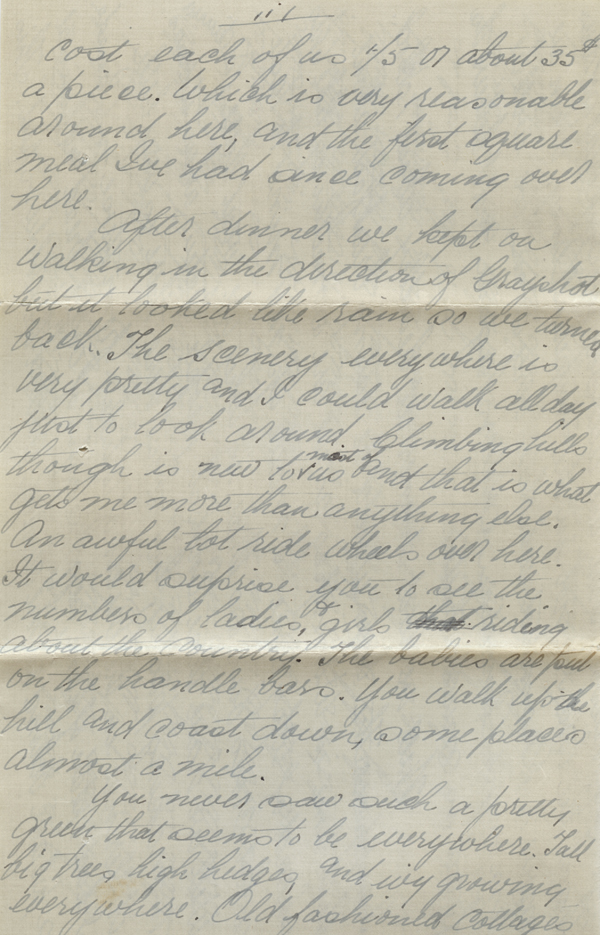 iii
cost each of us 1/5 or about 35¢
a piece. Which is very reasonable
around here, and the first square
meal Ive had since coming over
here.
After dinner we kept on
walking in the direction of Grayshot
but it looked like rain so we turned
back. The scenery everywhere is
very pretty and I could walk all day
just to look around. Climbing hills
though is new to most of us and that is what
gets me more than anything else.
An awful lot ride wheels over here.
It would suprise you to see the
numbers of ladies, & girls riding
about the country. The babies are put
on the handle bars. You walk up the
hill and coast down, some places
almost a mile.
You never saw such a pretty
green that seems to be everywhere. Tall
big trees, high hedges, and ivy growing
everywhere. Old fashioned cottages